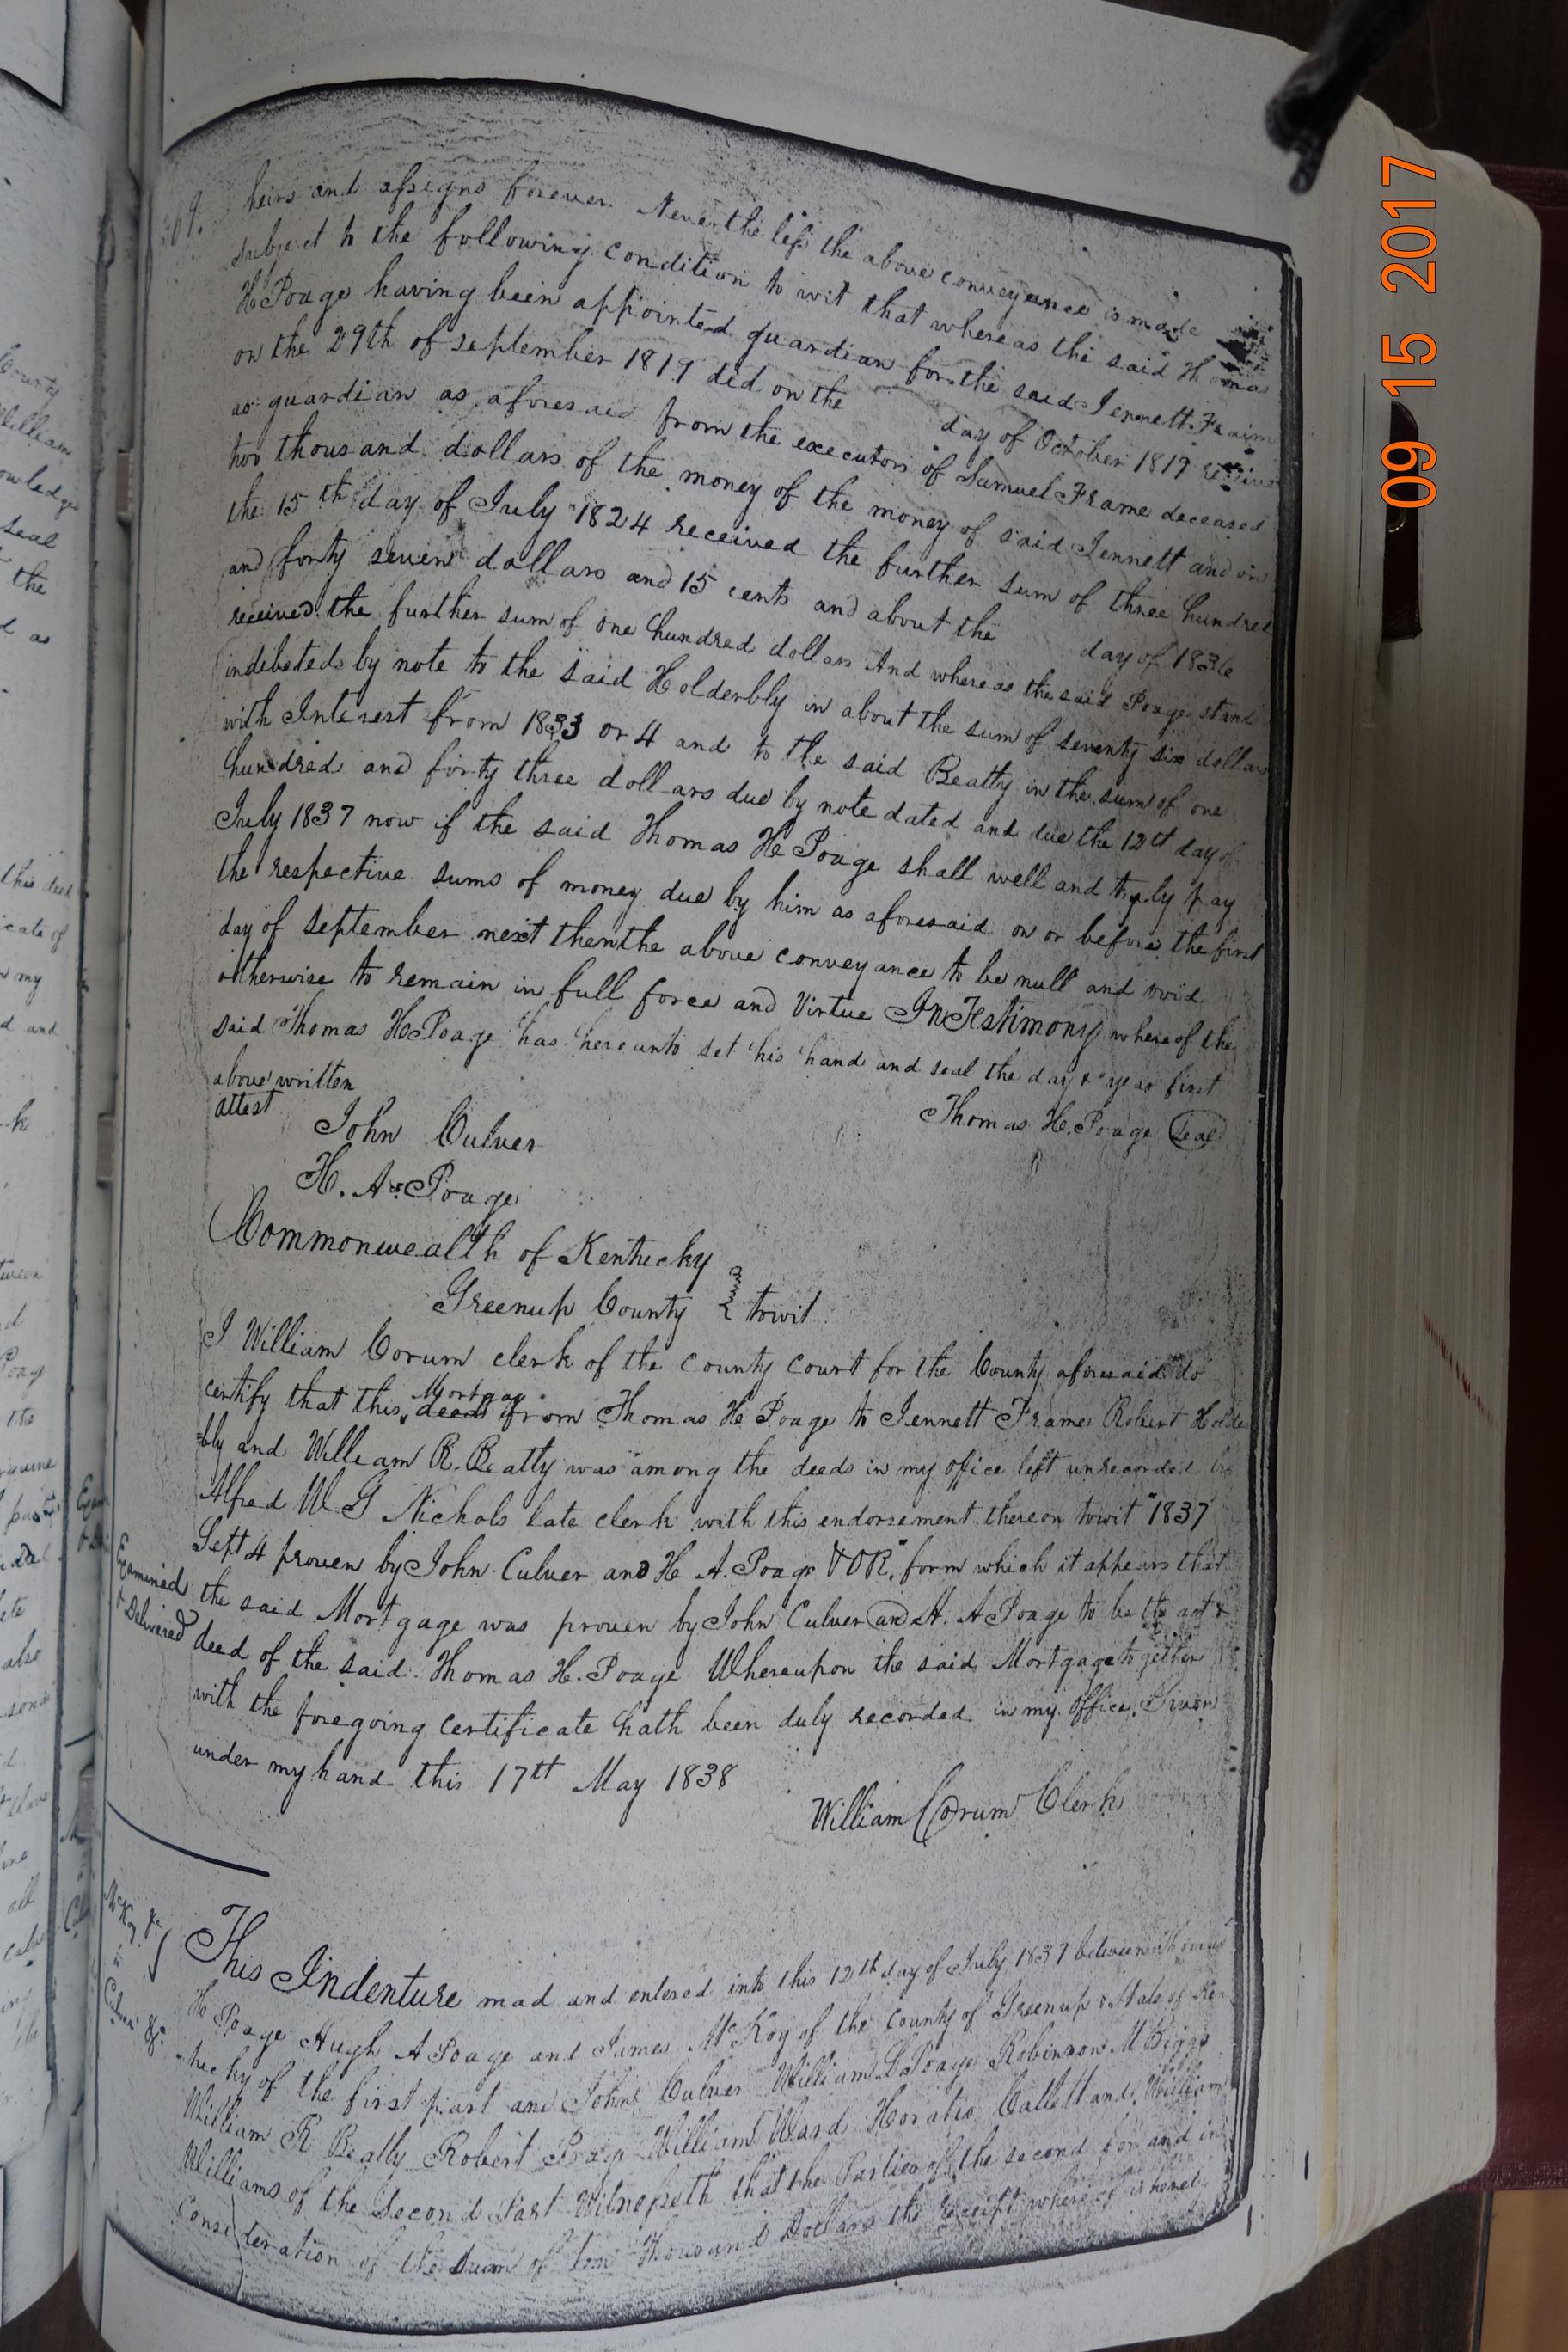 heirs and assigns forever. Nevertheless the above conveyance is made
subject to the following condition to wit that whereas the said Thomas
H Poage having been appointed guardian for the said Jennett Fraim
on the 29th of september 1819 did on the day of October 1819 receive
as guardian as aforesaid from the executors of Samuel Frame deceased
two thousand dollars of the money of the money of said Jennett and on
the 15th day of July 1824 received the further sum of three hundred
and forty seven dollars and 15 cents and about the day of 1836
received the further sum of one hundred dollars And whereas the said Poage stands
indebted by note to the said Holderbly in about the sum of seventy six dollars
with Interest from 1833 or 4 and to the said Beatty in the sum of one
hundred and forty three dollars due by note dated and due the 12th day of
July 1837 now if the said Thomas H Poage shall well and truly pay
the respective sums of money due by him as aforesaid on or before the first
day of september next then the above conveyance to be null and void
otherwise to remain in full force and Virtue In Testimony whereof the
said Thomas H Poage has hereunto set his hand and seal the day & year first
above written
attest
Thomas H. Poage (seal)
John Culver
H. A. Poage
Commonwealth of Kentucky
Greenup County } towit
I William Corum clerk of the county court for the County aforesaid do
certify that this Mortgage deed from Thomas H Poage to Jennett Frame Robert Holder
=bly and William R. Beatty was among the deeds in my office left unrecorded by
Alfred W G Nichols late clerk with this endorsement thereon towit "1837
Sept 4 proven by John Culver and H A. Poage & OR" form which it appears that
Examined & Delivered
the said Mortgage was proven by John Culver and H. A Poage to be the act &
deed of the said Thomas H. Poage Whereupon the said Mortgage together
with the foregoing certificate hath been duly recorded in my office. Given
under my hand this 17th May 1838
William Corum Clerk
McKoy &c
to
Culver &c.
This Indenture mad and entered into this 12th day of July 1837 between Thomas
H Poage Hugh A Poage and James McKoy of the County of Greenup & State of Ken
=tucky of the first part and John Culver William L Poage Robinson M Biggs
William R Beatty Robert Poage William Ward Horatio Catlett and William
Williams of the Second Part Witnesseth that the Parties of the second for and in
Consideration of the Sum of Thousand Dollars the receipt whereof is
09 15 2017